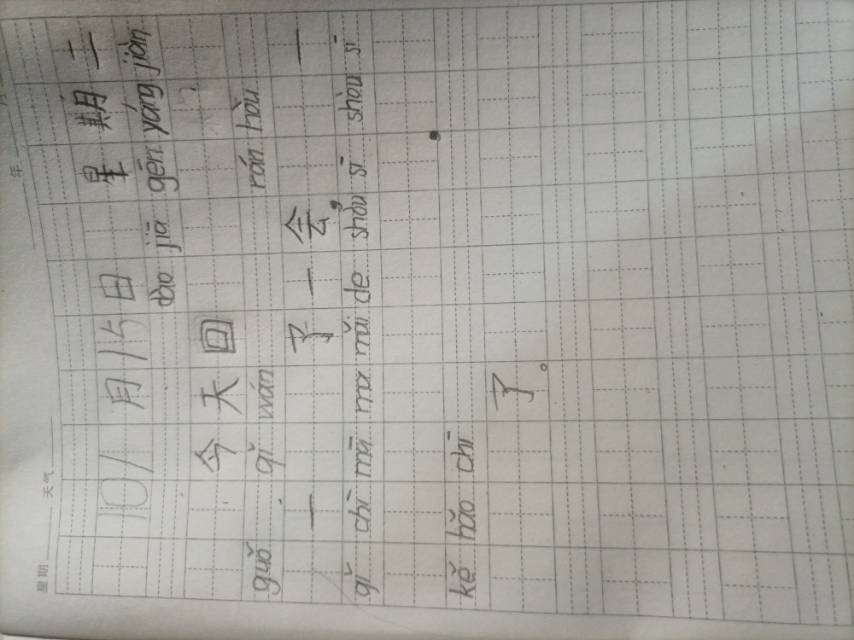 星期 天气 年
10月15日 星期二
dào jiā gēn yáng jiàn
今天回
guǒ qǐ wán rán hòu
一 了一会， 一
qǐ chī mā ma mǎi de shòu sī shòu sī
，
kě hǎo chī
了。